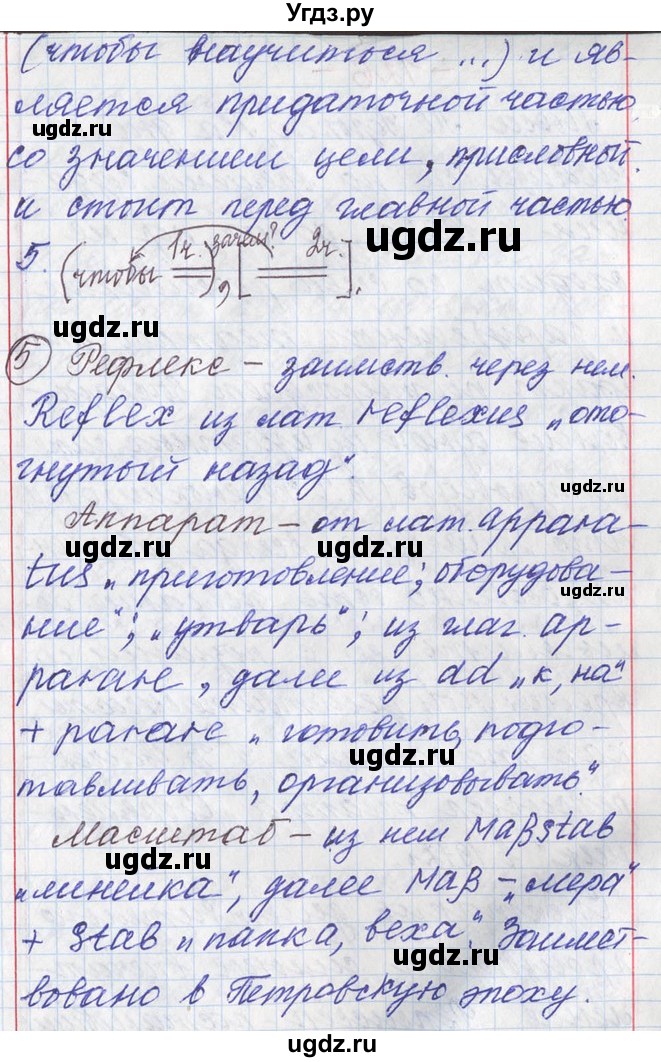 Угдз.ру
(чтобы научиться ...) и яв-
ляется придаточной частью
со значением цели, присловный
и стоит перед главной частью.
1ч. зачем? 2ч.
5. (чтобы ══), [── ══].
⑤ Рефлекс – заимств. через нем.
Reflex из лат. reflexus „ото-
гнутый назад".
Аппарат – от лат. appara-
tus „приготовление; оборудова-
ние"; „утварь"; из глаг. ap-
parare, далее из ad „к, на"
+ parare „готовить, подго-
тавливать, организовывать".
Масштаб – из нем Maßstab
„линейка", далее Maß – „мера"
+ Stab „палка, веха". Заимст-
вовано в Петровскую эпоху.
ugdz.ru